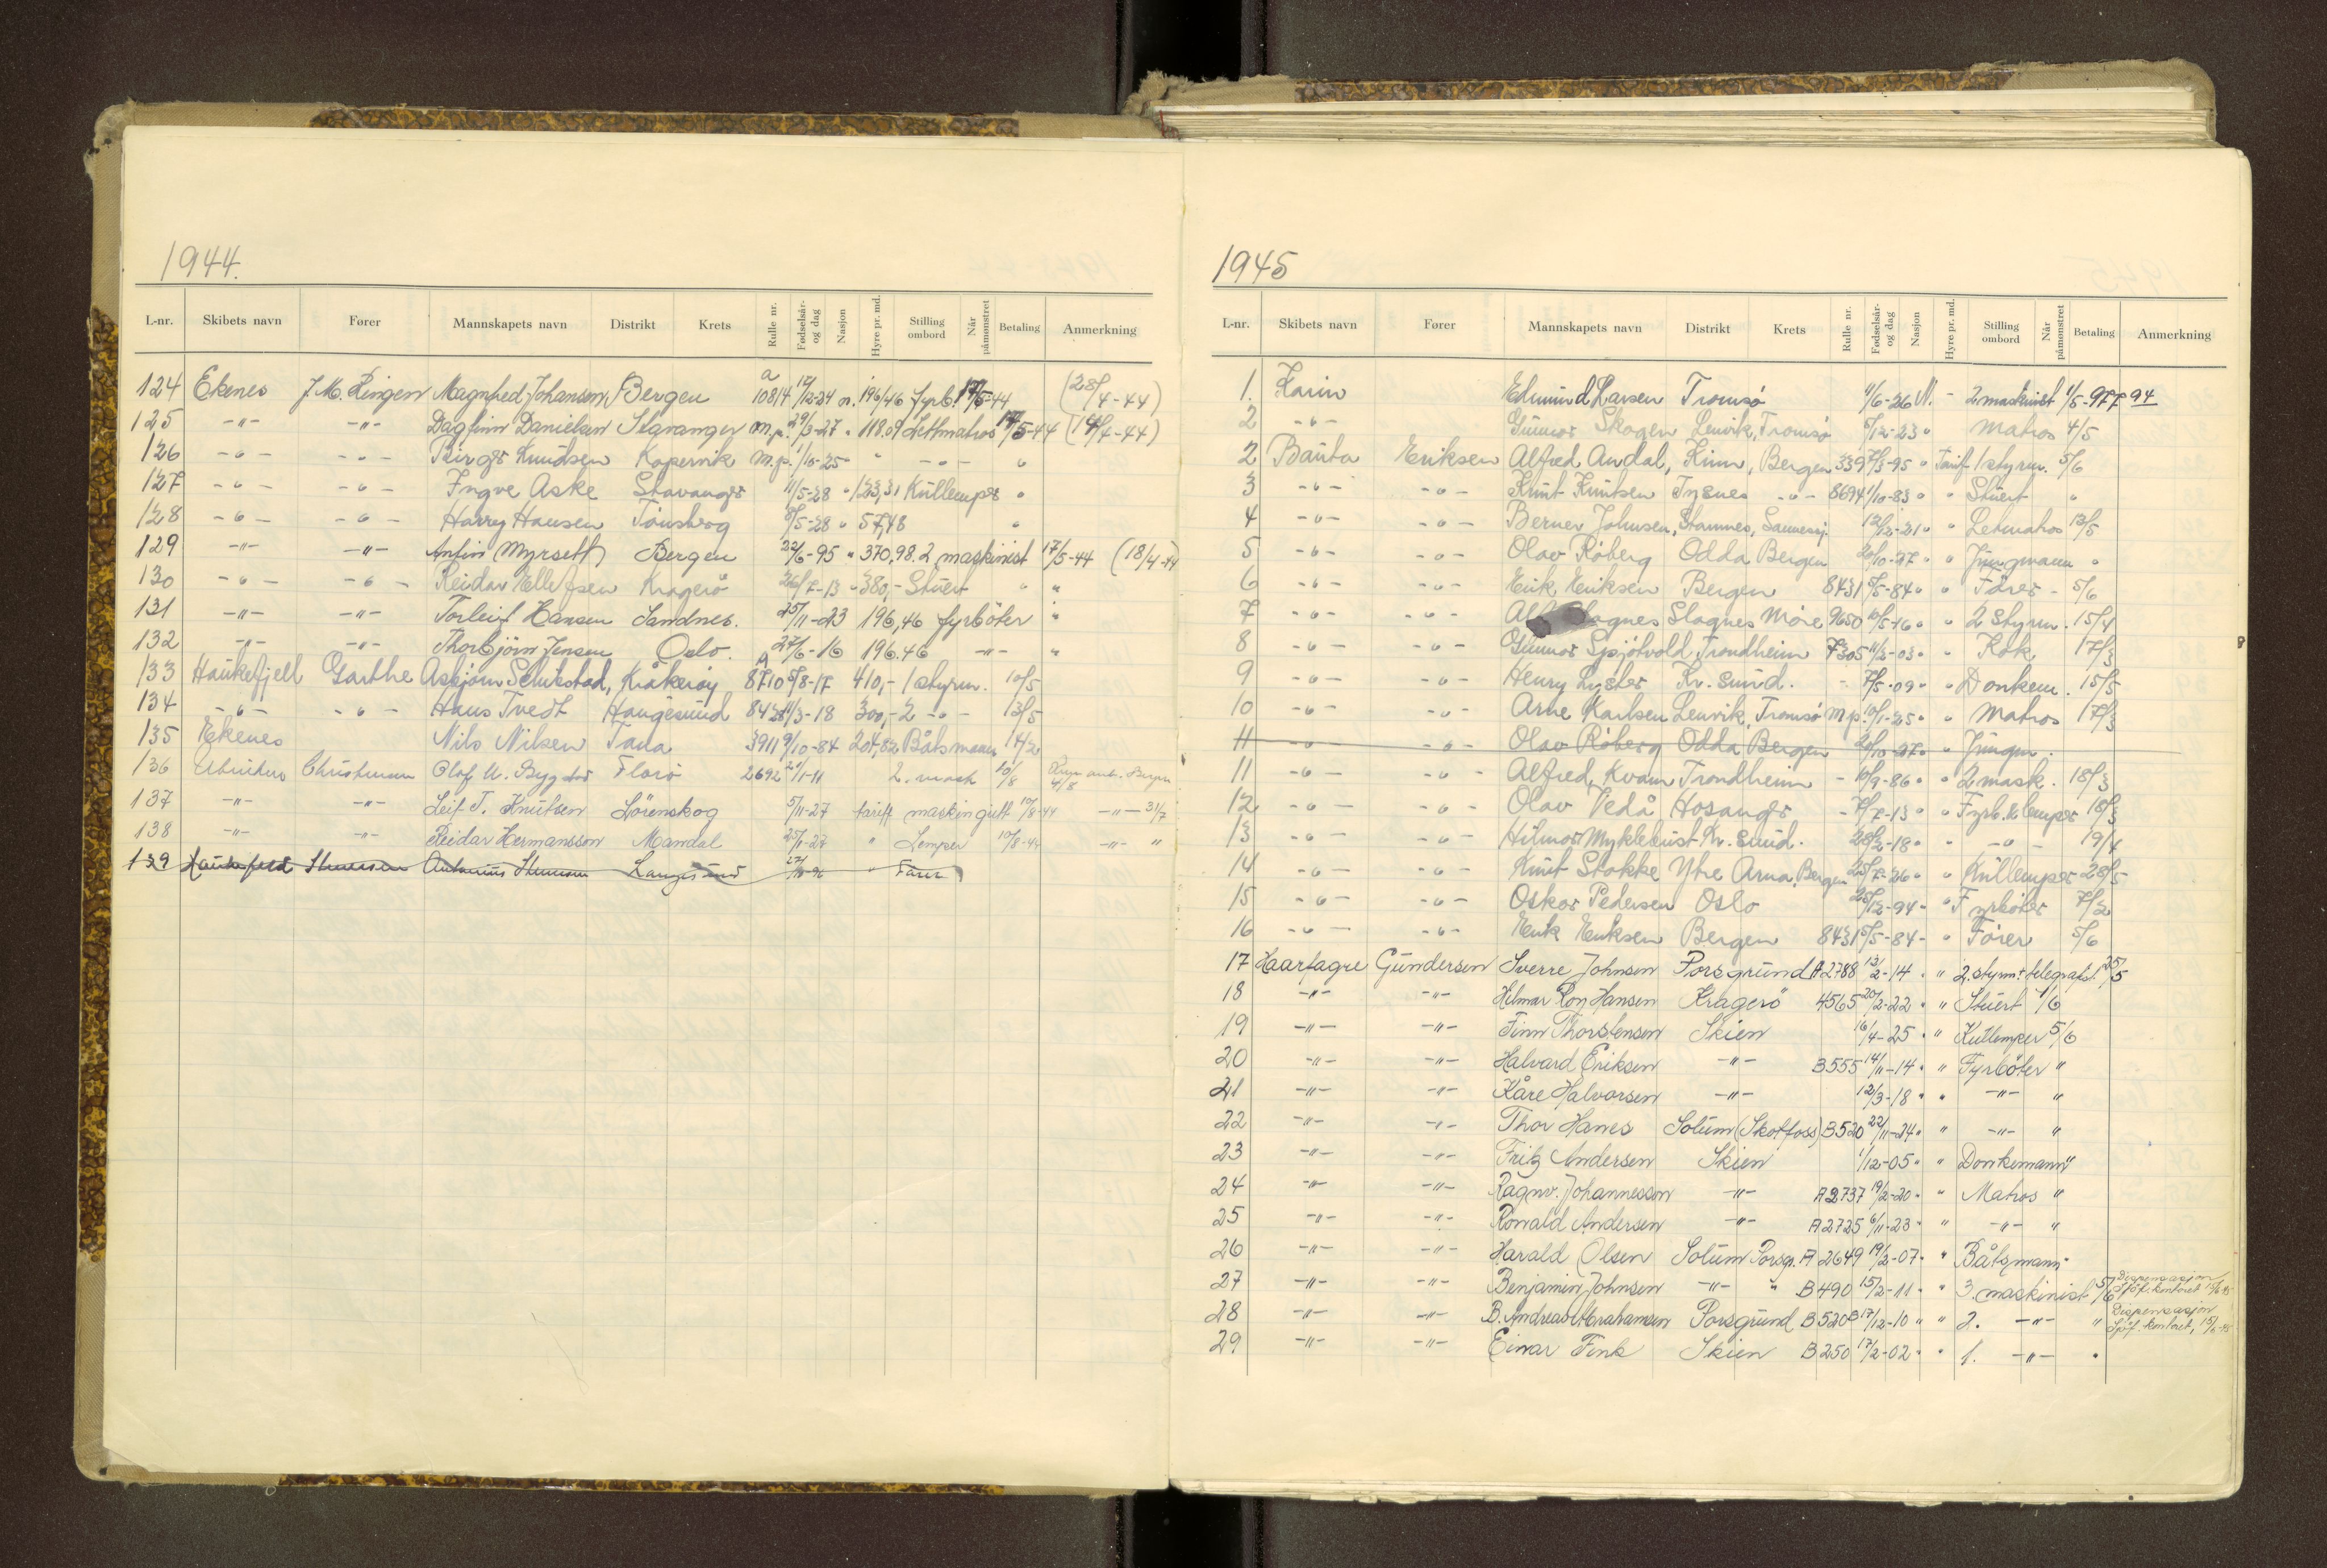 1944.
L-nr. Skibets navn Fører Mannskapets navn Distrikt Krets Rulle nr. Fødselsår- og dag Nasjon Hyre pr. md. Stilling ombord Når påmønstret Betaling Anmerkning
124 Ekenes J. M. Ringen Magnhed Johansen Bergen a 10814 17/12-24 n. 196/46 Fyrb. 17/5-44 (28/4-44)
125 -"- -"- Dagfinn Danielsen Stavanger m.p. 29/3-27 " 118.09 Lettmatros 17/5-44 (19/4-44)
126 -"- -"- Birger Knudsen Kopervik m.p. 1/10-25 " " -"- "
127 -"- -"- Yngve Aske Stavanger 11/5-28 " 123,31 Kullemper "
128 -"- -"- Harry Hansen Tønsberg 8/5-28 " 57,48 "
129 -"- -"- Anfin Myrseth Bergen 22/6-95 " 370,98. 2 maskinist 17/5-44 (18/4-44)
130 -"- -"- Reidar Ellefsen Kragerö 26/7-13 " 380,- Stuert " "
131 -"- -"- Torleif Hansen Sandnes. 25/11-23 196,46 fyrböter "
132 -"- -"- Thorbjörn Jensen Oslo. 27/6-16 196.46 -"- "
133 Haukefjell Garthe Asbjørn Schikstad, Kråkerøy A 8710 5/8-17 410,- 1 styrm. 10/5
134 -"- -"- Hans Tvedt Haugesund 8428 11/3-18 300,- 2 -"- 13/5
135 Ekenes Nils Nilsen Tana 3911 9/10-84 204,82 Båtsmann 14/2
136 Christensen Olaf U. Bygstad Florö 2692 29/1-11 2. mask 10/8 Bergen 4/8
137 -"- -"- Leif T. Knutsen Lörenskog 5/11-27 tariff maskingutt 10/8-44 -"- 31/7
138 -"- -"- Reidar Hermansson Mandal 25/1-27 " Lemper 10/8-44 -"- "
139 Antonius Langesund 27/11-96 " Fører
1945
L-nr. Skibets navn Fører Mannskapets navn Distrikt Krets Rulle nr. Fødselsår- og dag Nasjon Hyre pr. md. Stilling ombord Når påmønstret Betaling Anmerkning
1. Karin Edmund Larsen Tromsø 11/6-26 N. - 2 maskinist 1/5-977 94
2 -"- Gunnar Skogen Lenvik, Tromsø 8/12-23 " Matros 4/5
2 Bauta Eriksen Alfred Andal, Kinn, Bergen 339 7/3-95 " Tarif 1 styrm. 5/6
3 -"- -"- Knut Knutsen Tysnes -"- 8694 1/10-83 " " Stuert "
4 -"- -"- Berner Johnsen, Stamnes, 12/12-21 " " Letmatros 13/5
5 -"- -"- Olav Røberg Odda Bergen 20/10-27 " " Jungmann "
6 -"- -"- Erik Eriksen Bergen 8431 5/5-84 " " Fører - 5/6
7 -"- -"- Slagnes Møre 9650 10/5-16 " " 2 Styrm. 15/4
8 -"- -"- Gunnar Sjøtvold Trondheim 7305 11/2-03 " " Kok 17/3
9 -"- -"- Henry Lyster Kr. sund. - 7/5-09 " " Donkem. 15/5
10 -"- -"- Arne Karlsen Lenvik, Tromsø m.p. 10/1-25 " " Matros 17/3
11 -"- -"- Olav Röberg Odda Bergen 20/10-27 " " Jungm.
11 -"- -"- Alfred Kvam Trondheim - 10/9-86 " " 2 mask. 18/3
12 -"- -"- Olav Vedå Hosanger - 7/7-13 " " Fyrb. & lemper 18/3
13 -"- -"- Hilmar Myklebust Kr. sund. 28/2-18 " " -"- 19/4
14 -"- -"- Knut Stokke Ytre Arna, Bergen 25/7-26 " " Kullemper 28/5
15 -"- -"- Oskar Pedersen Oslo 25/12-94 " " Fyrböter 7/2
16 -"- -"- Erik Eriksen Bergen 8431 5/5-84 - " Fører 5/6
17 Haarfagre Gundersen Sverre Johnsen Porsgrund A 2788 13/2-14 " " 2. styrm + telegrafist 25/5
18 -"- -"- Hilmar Roy Hansen Kragerö 4565 20/2-22 " " Stuert 1/6
19 -"- -"- Finn Thorstensen Skien 16/4-25 " " Kullemper 5/6
20 -"- -"- Halvard Eriksen -"- B555 14/11-14 " " Fyrböter "
21 -"- -"- Kåre Halvorsen -"- 12/3-18 " " -"- "
22 -"- -"- Thor Hanes Solum (Skotfoss) B520 22/11-24 " " -"- "
23 -"- -"- Fritz Andersen Skien 1/12-05 " " Donkemann "
24 -"- -"- Ragnv. Johannessen -"- A 2737 19/2-20 " " Matros "
25 -"- -"- Ronald Andersen -"- A 2725 6/11-23 " " -"- "
26 -"- -"- Harald Olsen Solum Porsgr. A 2649 19/2-07 " " Båtsmann "
27 -"- -"- Benjamin Johnsen -"- " B490 15/2-11 " " 3. maskinist 5/6 Dispensasjon Sjöf. kontoret 15/6-45
28 -"- -"- B. Andreas Abrahamsen Porsgrund B520 17/12-10 " " 2. -"- " Dispensasjon Sjöf. kontoret, 15/6-45
29 -"- -"- Einar Fink Skien B250 17/2-02 " " 1. -"- "